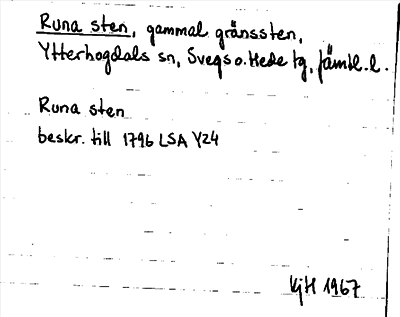 Runa sten, gammal gränssten,
Ytterhogdals sn, Svegs o. Hede tg, Jämtl. l.
Runa sten
beskr. till 1796 LSA Y24
KjH 1967